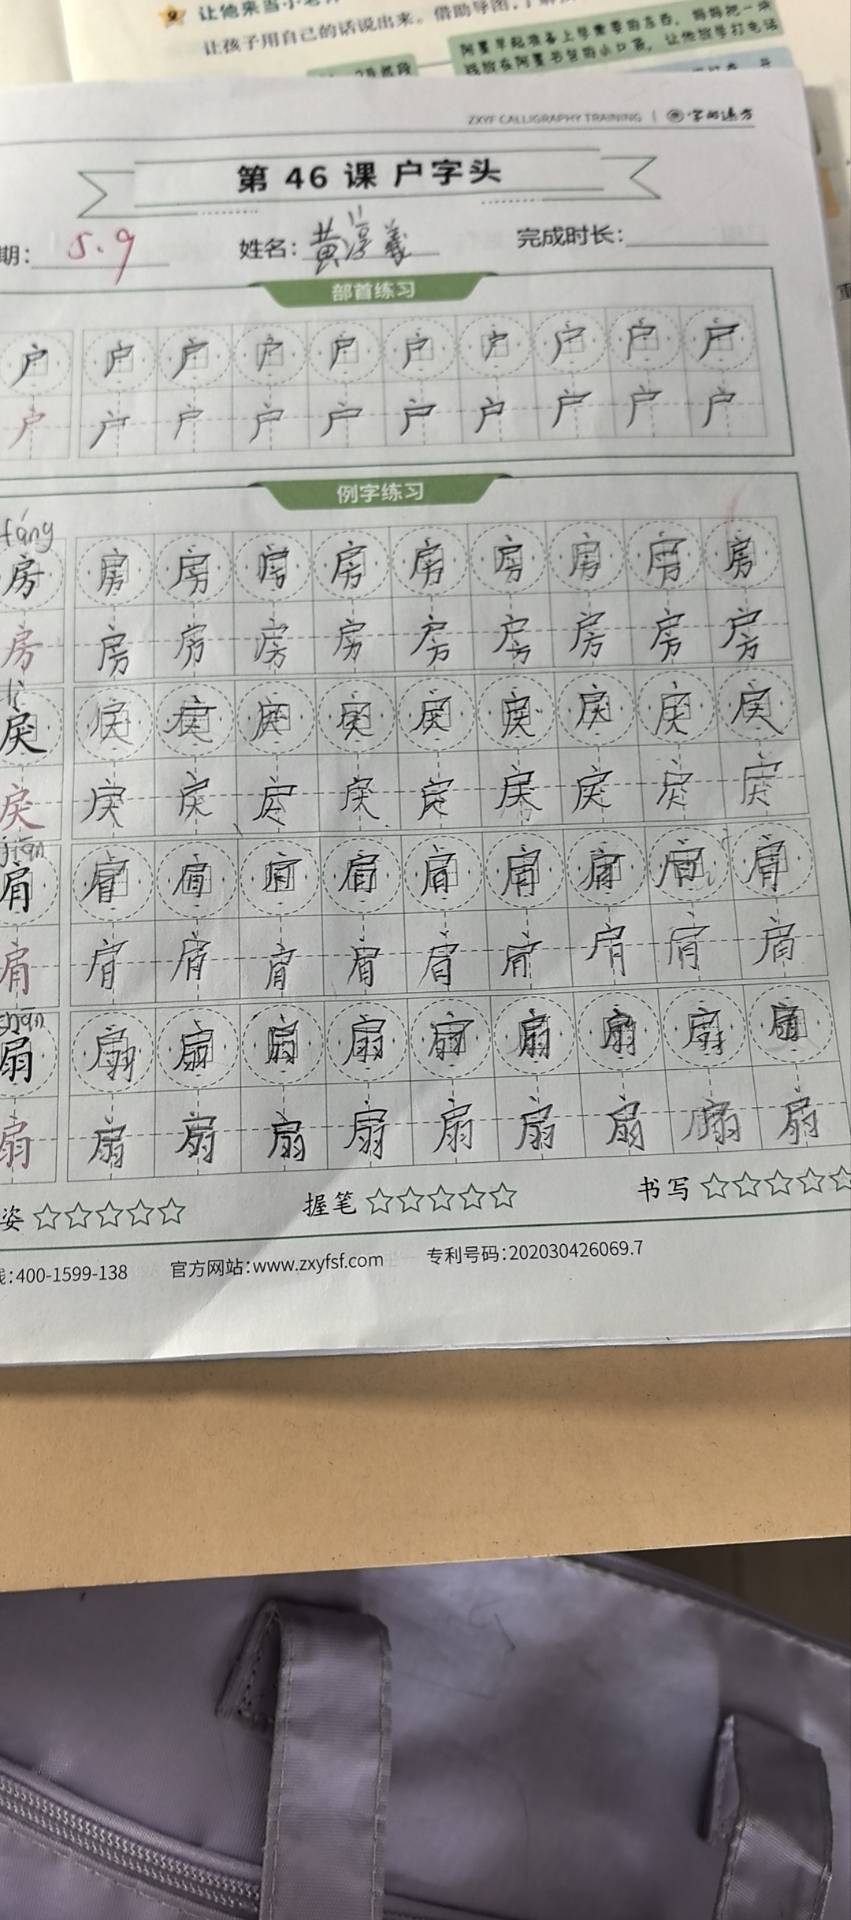 让他来当小老
让孩子用自己的话说出来。借助导图,
阿董早起准备上学需要的东西,妈妈把一块
钱放在阿董书包的小口袋,让他放学打电话
ZXYF CALLIGRAPHY TRAINING
第 46 课 户字头
期: 5.9 姓名: 黄淳義 完成时长:
部首练习
户 户 户 户 户 户 户 户 户 户
户 户 户 户 户 户 户 户 户 户
例字练习
fáng
房 房 房 房 房 房 房 房 房 房
房 房 房 房 房 房 房 房 房 房
lì
戾 戾 戾 戾 戾 戾 戾 戾 戾 戾
戾 戾 戾 戾 戾 戾 戾 戾 戾 戾
jiān
肩 肩 肩 肩 肩 肩 肩 肩 肩 肩
肩 肩 肩 肩 肩 肩 肩 肩 肩 肩
shān
扇 扇 扇 扇 扇 扇 扇 扇 扇 扇
扇 扇 扇 扇 扇 扇 扇 扇 扇 扇
姿 握笔 书写
线:400-1599-138 官方网站:www.zxyfsf.com 专利号码:202030426069.7